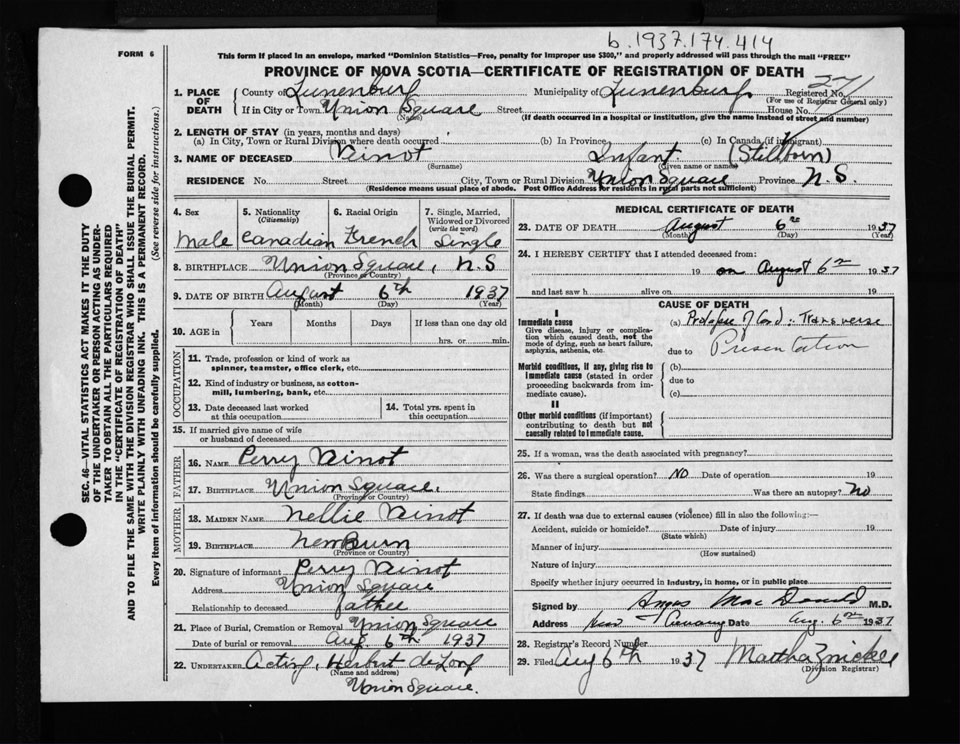 b.1937.174.414
FORM 6
This form if placed in an envelope, marked "Dominion Statistics—Free, penalty for improper use $300," and properly addressed will pass through the mail "FREE"
PROVINCE OF NOVA SCOTIA—CERTIFICATE OF REGISTRATION OF DEATH
1. PLACE OF DEATH County of Lunenburg Municipality of Lunenburg Registered No.
(For use of Registrar General only)
If in City or Town Union Square Street House No.
(Name) (If death occurred in a hospital or institution, give the name instead of street and number)
2. LENGTH OF STAY (in years, months and days)
(a) In City, Town or Rural Division where death occurred (b) In Province (c) In Canada (if immigrant)
3. NAME OF DECEASED Veinot Infant. (Stillborn)
(Surname) (Given name or names)
RESIDENCE No. Street City, Town or Rural Division Union Square Province N.S.
(Residence means usual place of abode. Post Office Address for residents in rural parts not sufficient)
4. Sex 5. Nationality (Citizenship) 6. Racial Origin 7. Single, Married, Widowed or Divorced (write the word)
Male Canadian French Single
8. BIRTHPLACE Union Square, N.S
(Province or Country)
9. DATE OF BIRTH August 6th 1937
(Month) (Day) (Year)
10. AGE in Years Months Days If less than one day old
hrs. or min.
OCCUPATION
11. Trade, profession or kind of work as spinner, teamster, office clerk, etc.
12. Kind of industry or business, as cotton-mill, lumbering, bank, etc.
13. Date deceased last worked at this occupation 14. Total yrs. spent in this occupation
15. If married give name of wife or husband of deceased
FATHER
16. NAME Perry Veinot
17. BIRTHPLACE Union Square.
(Province or Country)
MOTHER
18. MAIDEN NAME Nellie Veinot
19. BIRTHPLACE NewBurn
(Province or Country)
20. Signature of informant Perry Veinot
Address Union Square
Relationship to deceased father
21. Place of Burial, Cremation or Removal Union Square
Date of burial or removal Aug 6th 1937
22. UNDERTAKER Acting, Herbert deLong
(Name and address)
Union Square.
MEDICAL CERTIFICATE OF DEATH
23. DATE OF DEATH August 6th 1937
(Month) (Day) (Year)
24. I HEREBY CERTIFY that I attended deceased from:
19 on August 6th 1937
and last saw h alive on 19
CAUSE OF DEATH
I
Immediate cause (a) Prolapse of Cord: Transverse
Give disease, injury or complication which caused death, not the mode of dying, such as heart failure, asphyxia, asthenia, etc.
due to Presentation
Morbid conditions, if any, giving rise to immediate cause (stated in order proceeding backwards from immediate cause).
(b)
due to
(c)
II
Other morbid conditions (if important) contributing to death but not causally related to immediate cause.
25. If a woman, was the death associated with pregnancy?
26. Was there a surgical operation? NO Date of operation 19
State findings Was there an autopsy? No
27. If death was due to external causes (violence) fill in also the following:—
Accident, suicide or homicide? Date of injury 19
(State which)
Manner of injury
(How sustained)
Nature of injury
Specify whether injury occurred in industry, in home, or in public place
Signed by Angus MacDonald M.D.
Address New Germany Date Aug. 6th 1937
28. Registrar's Record Number
29. Filed Aug 6th 1937 Martha Zwicker
(Division Registrar)
SEC. 46—VITAL STATISTICS ACT MAKES IT THE DUTY
OF THE UNDERTAKER OR PERSON ACTING AS UNDER-
TAKER TO OBTAIN ALL THE PARTICULARS REQUIRED
IN THE "CERTIFICATE OF REGISTRATION OF DEATH"
AND TO FILE THE SAME WITH THE DIVISION REGISTRAR WHO SHALL ISSUE THE BURIAL PERMIT.
WRITE PLAINLY WITH UNFADING INK. THIS IS A PERMANENT RECORD.
Every item of information should be carefully supplied. (See reverse side for instructions.)